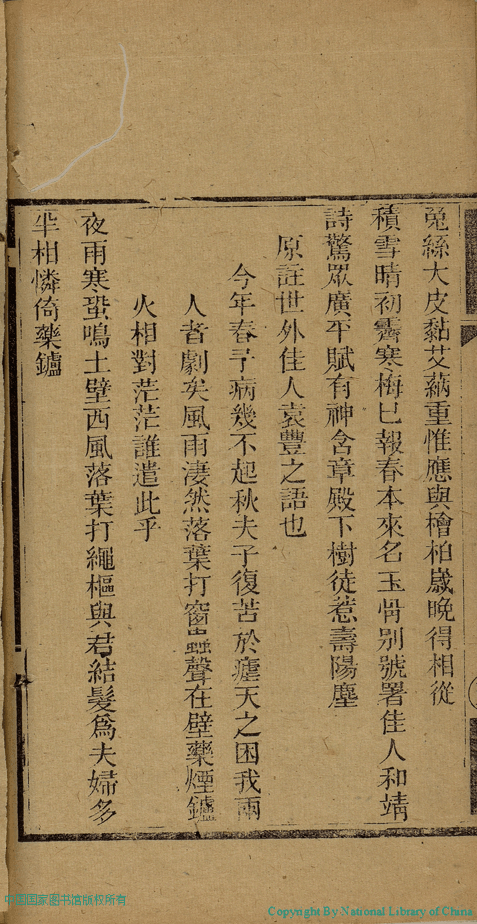 菟絲大皮黏艾蒳重惟應與檜柏歲晩得相從
積雪晴初霽寒梅已報春本來名玉骨别號署佳人和靖
詩驚眾廣平賦有神含章殿下樹徒惹壽陽塵
原註世外佳人袁豐之語也
今年春予病幾不起秋夫子復苦於瘧天之困我兩
人者劇矣風雨淒然落葉打窗蟲聲在壁藥煙鑪
火相對茫茫誰遣此乎
夜雨寒蛩鳴土壁西風落葉打繩樞與君結髮爲夫婦多
半相憐倚藥鑪
中国国家图书馆版权所有
Copyright By National Library of China